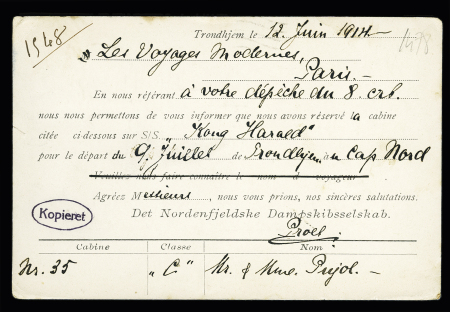 Trondhjem le 12. Juin 1914.
1548
Les Voyages Modernes,
Paris.-
En nous référant à votre dépêche du 8. crt.
nous nous permettons de vous informer que nous avons réservé la cabine
citée ci-dessous sur S/S. "Kong Harald"
pour le départ du 9. Juillet de Trondhjem au Cap Nord
Veuillez nous faire connaître le nom voyageur
Agréez Messieurs, nous vous prions, nos sincères salutations.
Kopieret
Det Nordenfjeldske Dampskibsselskab.
Cabine Classe Nom
Nr. 35 "C" Mr. & Mme. Pujol.-